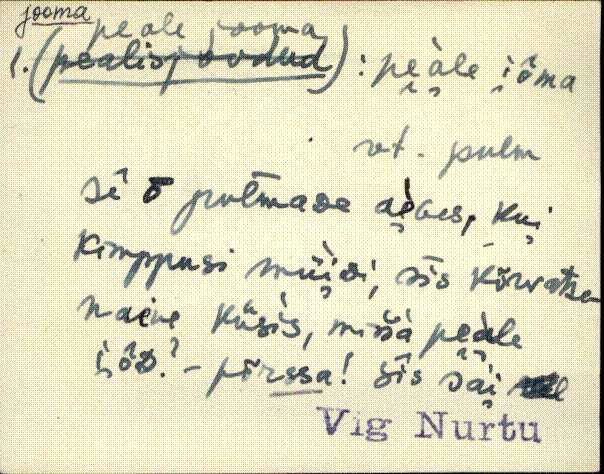 jooma
peale jooma
1. (pealisjoodud) : peàle i̯ôma
vt. pulm
sê ō pul̄mase ai̯Ges, kui̯
kimppusi müi̯di, sîs kõrvatse
naine küsis, mi sa peàle
i̯ôD? – põrssa! Sîs sai̯
Vig Nurtu